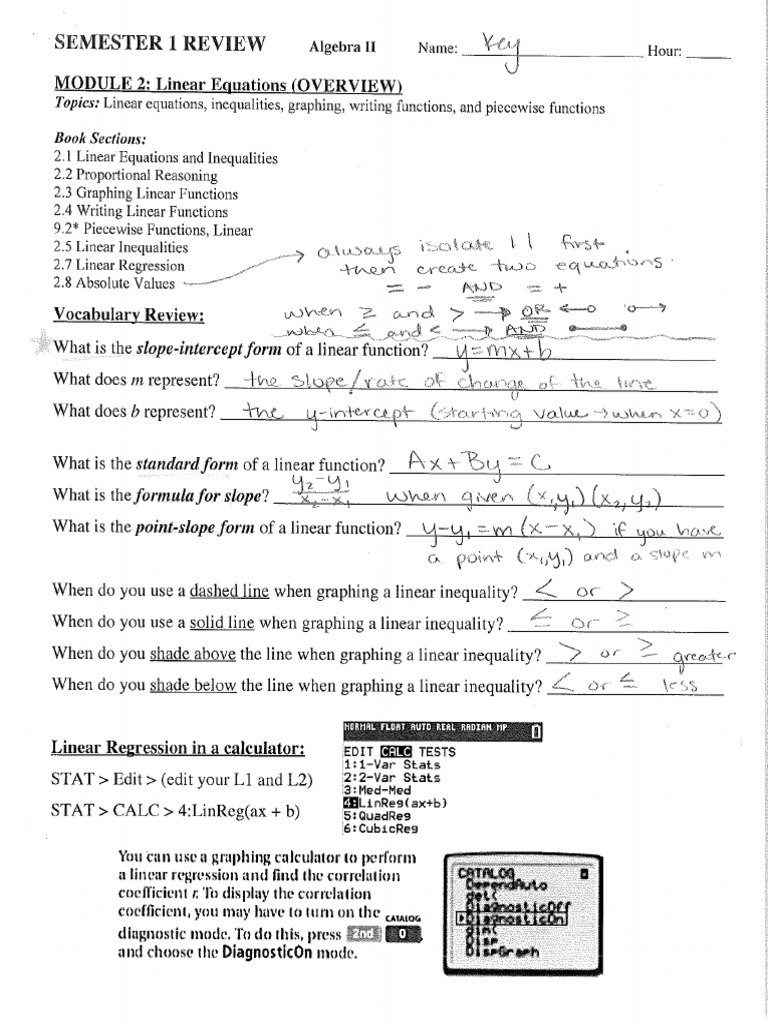 SEMESTER 1 REVIEW Algebra II Name: Key Hour:
MODULE 2: Linear Equations (OVERVIEW)
Topics: Linear equations, inequalities, graphing, writing functions, and piecewise functions
Book Sections:
2.1 Linear Equations and Inequalities
2.2 Proportional Reasoning
2.3 Graphing Linear Functions
2.4 Writing Linear Functions
9.2* Piecewise Functions, Linear
2.5 Linear Inequalities
2.7 Linear Regression
2.8 Absolute Values
always isolate | | first.
then create two equations.
= - AND = +
Vocabulary Review:
when ≥ and > → OR
when ≤ and < → AND
What is the slope-intercept form of a linear function? y=mx+b
What does m represent? the slope/rate of change of the line
What does b represent? the y-intercept (starting value → when x=0)
What is the standard form of a linear function? Ax+By=C
What is the formula for slope? y₂-y₁/x₂-x₁ when given (x₁,y₁) (x₂,y₂)
What is the point-slope form of a linear function? y-y₁=m(x-x₁) if you have
a point (x₁,y₁) and a slope m
When do you use a dashed line when graphing a linear inequality? < or >
When do you use a solid line when graphing a linear inequality? ≤ or ≥
When do you shade above the line when graphing a linear inequality? > or ≥ greater
When do you shade below the line when graphing a linear inequality? < or ≤ less
Linear Regression in a calculator:
STAT > Edit > (edit your L1 and L2)
STAT > CALC > 4:LinReg(ax + b)
NORMAL FLOAT AUTO REAL RADIAN MP
EDIT CALC TESTS
1:1-Var Stats
2:2-Var Stats
3:Med-Med
4:LinReg(ax+b)
5:QuadReg
6:CubicReg
You can use a graphing calculator to perform
a linear regression and find the correlation
coefficient r. To display the correlation
coefficient, you may have to turn on the CATALOG
diagnostic mode. To do this, press 2nd 0
and choose the DiagnosticOn mode.
CATALOG
DependAuto
det(
DiagnosticOff
DiagnosticOn
dim(
Disp
DispGraph